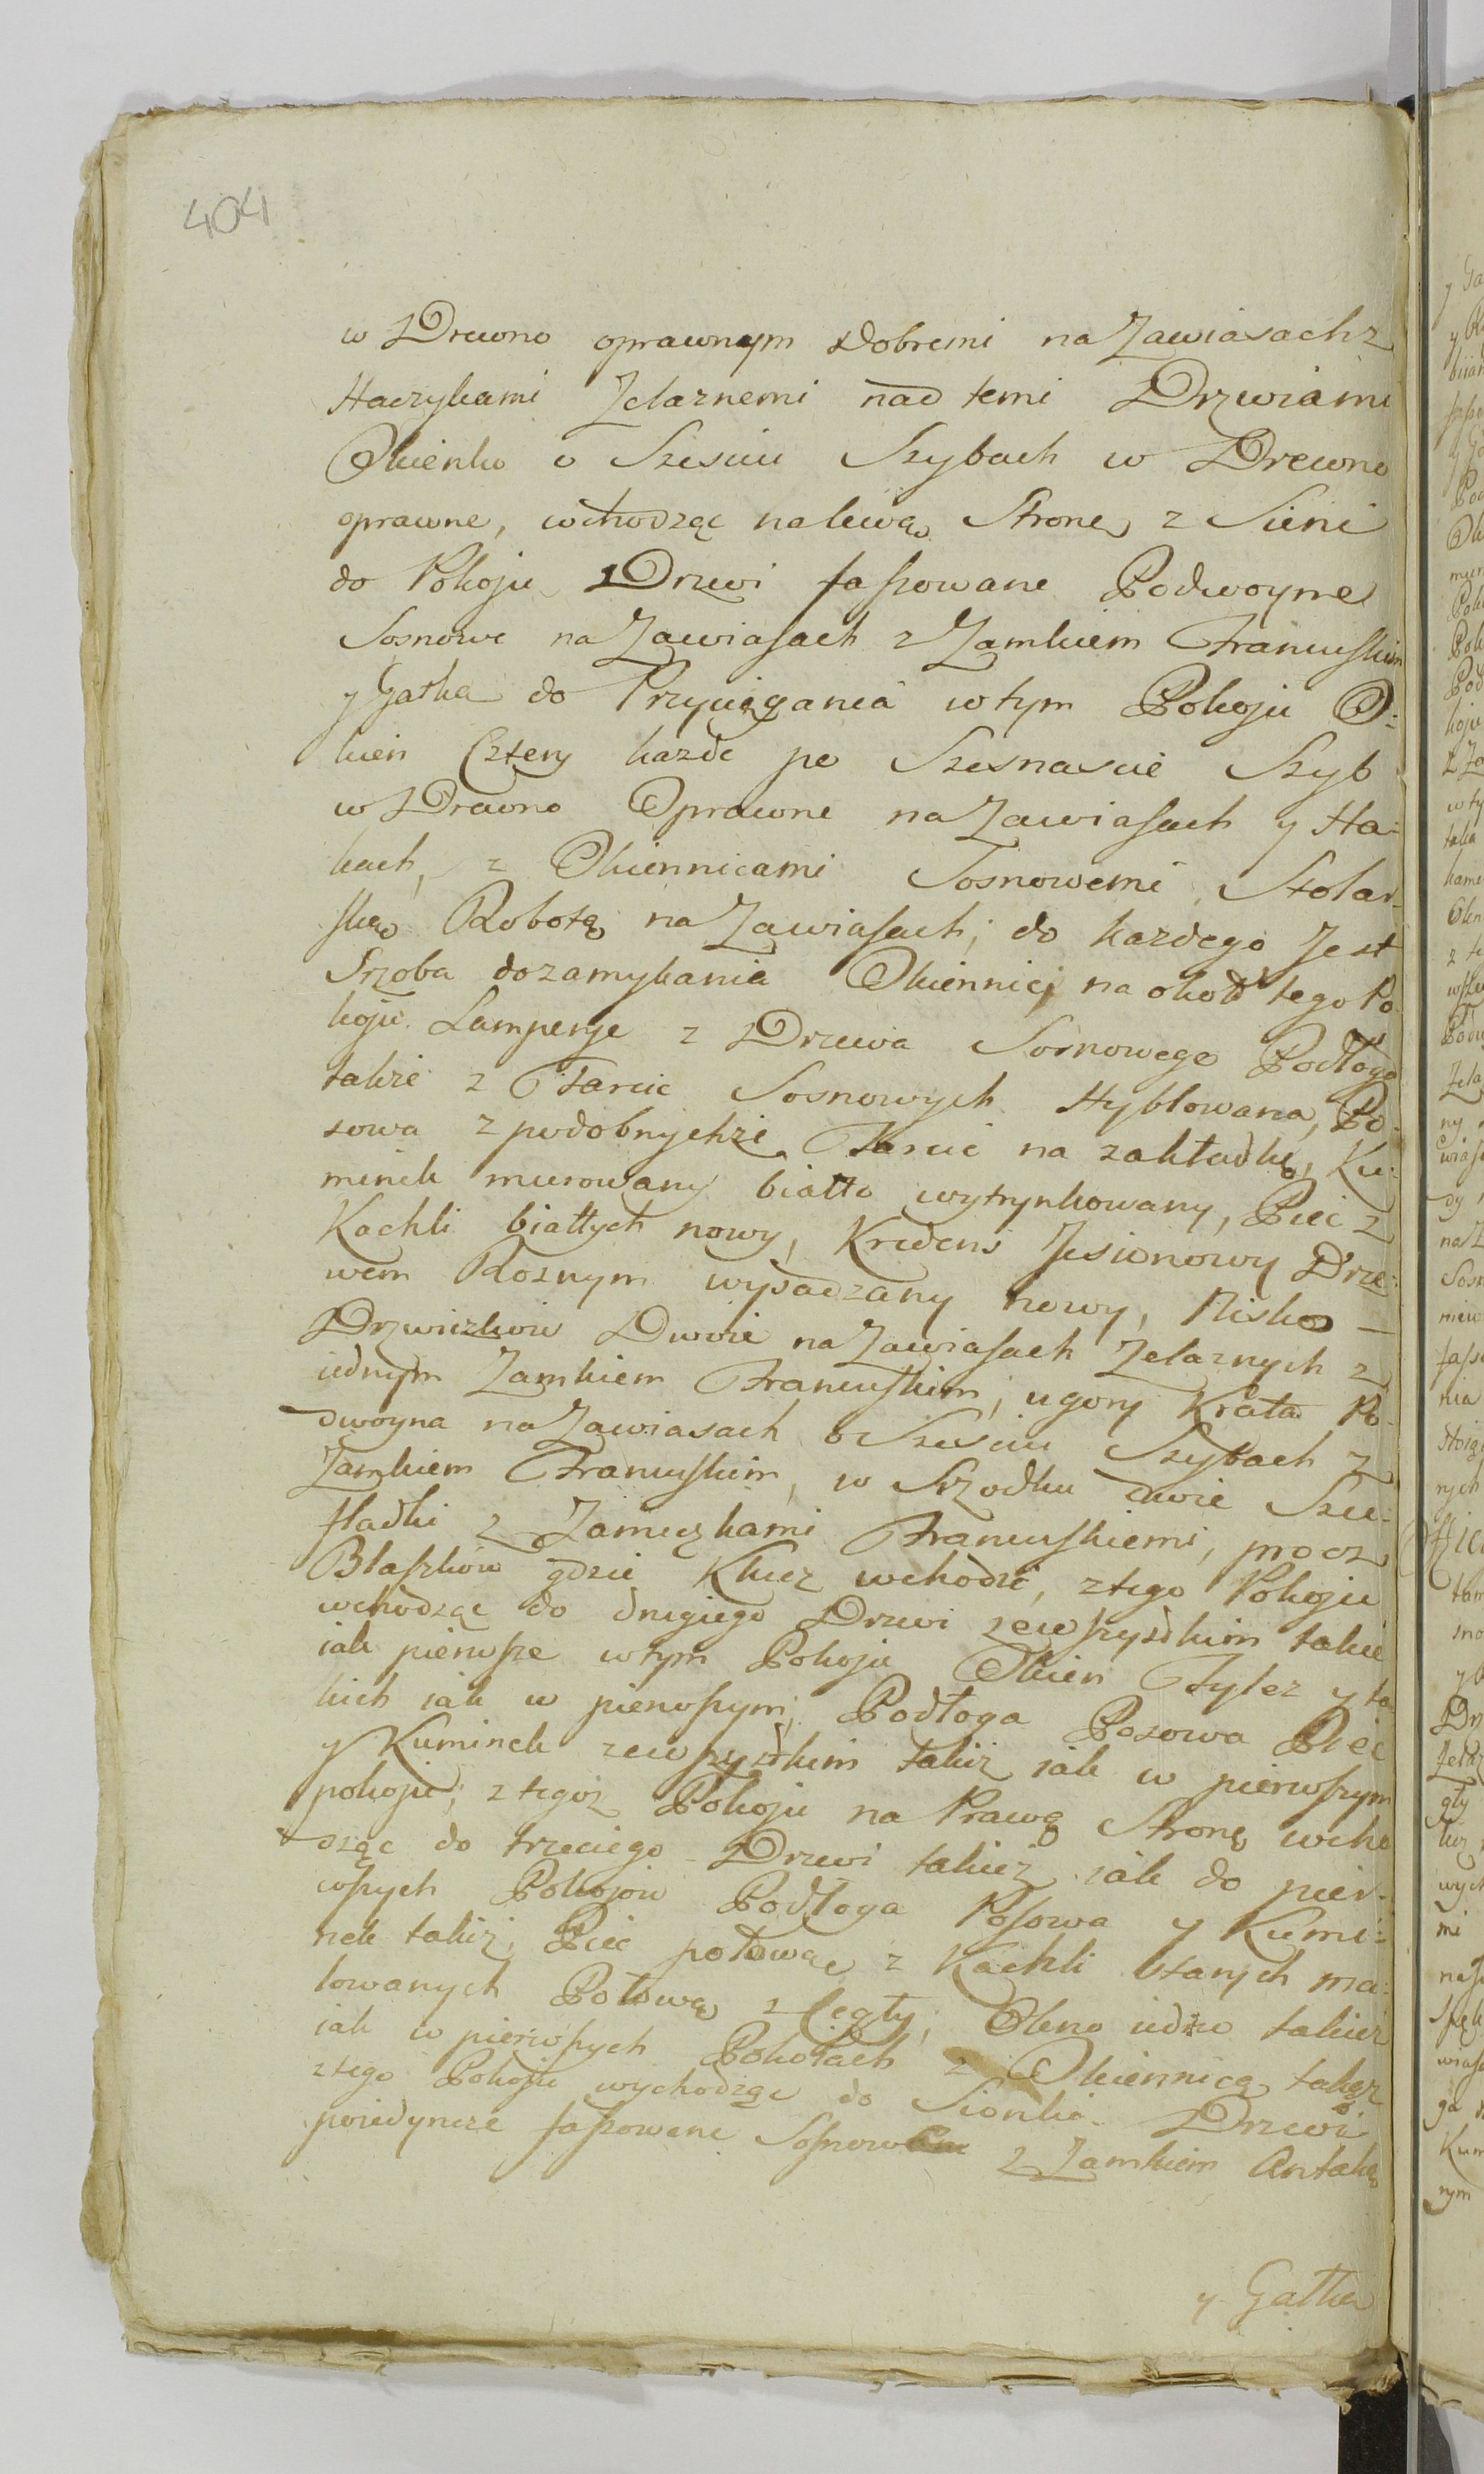 404
w Drewno oprawnym dobremi na Zawiasach z
Haczykami Zelaznemi nad temi Drzwiami
Okienko o Szesciu Szybach w Drewno
oprawne, wchodząc na lewą Stronę z Sieni
do Pokoju Drzwi fassowane Podwoyne
Sosnowe na Zawiasach z Zamkiem Francuskim
y Gałka do Przyciągania w tym Pokoju O-
kien Cztery kazde po Szesnascie Szyb
w Drewno Oprawne na Zawiasach y Ha-
kach, z Okiennicami Sosnowemi Stolar-
ską Robotą na Zawiasach; do kazdego Jest
Srzoba do zamykania Okiennic; na około tego Po-
koju Lamperye z Drzewa Sosnowego Podłoga
takze z Tarcic Sosnowych Hyblowana, Po-
sowa z podobnychze Tarcic na zakładkę, Ku-
minek murowany biało wytynkowany, Piec z
Kachli białych nowy, Kredens Jesionowy Drze-
wem Roznym wysadzany nowy, Nisko —
Drzwiczkow Dwoie na Zawiasach Zelaznych z
iednym Zamkiem Francuskim; u gory Krata Po-
dwoyna na Zawiasach o Szesciu Szybach z
Zamkiem Francuskim, w Srzodku dwie Szu-
fladki z Zameczkami Francuskiemi, procz
Blaszkow gdzie Klucz wchodzi, z tego Pokoju
wchodząc do drugiego Drzwi zewszystkim takie
iak pierwsze w tym Pokoju Okien Tylez y ta-
kich iak w pierwszym; Podłoga Posowa Piec
y Kuminek zewszystkim takiz iak w pierwszym
pokoju; z tegoz Pokoju na Prawą Stronę wcho-
dząc do trzeciego Drzwi takiez iak do pier-
wszych Pokojow Podłoga Posowa y Kumi-
nek takiz, Piec połowę z Kachli starych ma-
lowanych Połowę z Cegły, Okno iedno takiez
iak w pierwszych Pokoiach z Okiennicą takąz
z tego Pokoju wychodząc do Sionki Drzwi
poiedyncze fassowane Sosnowe z Zamkiem Antabą
y Gałka